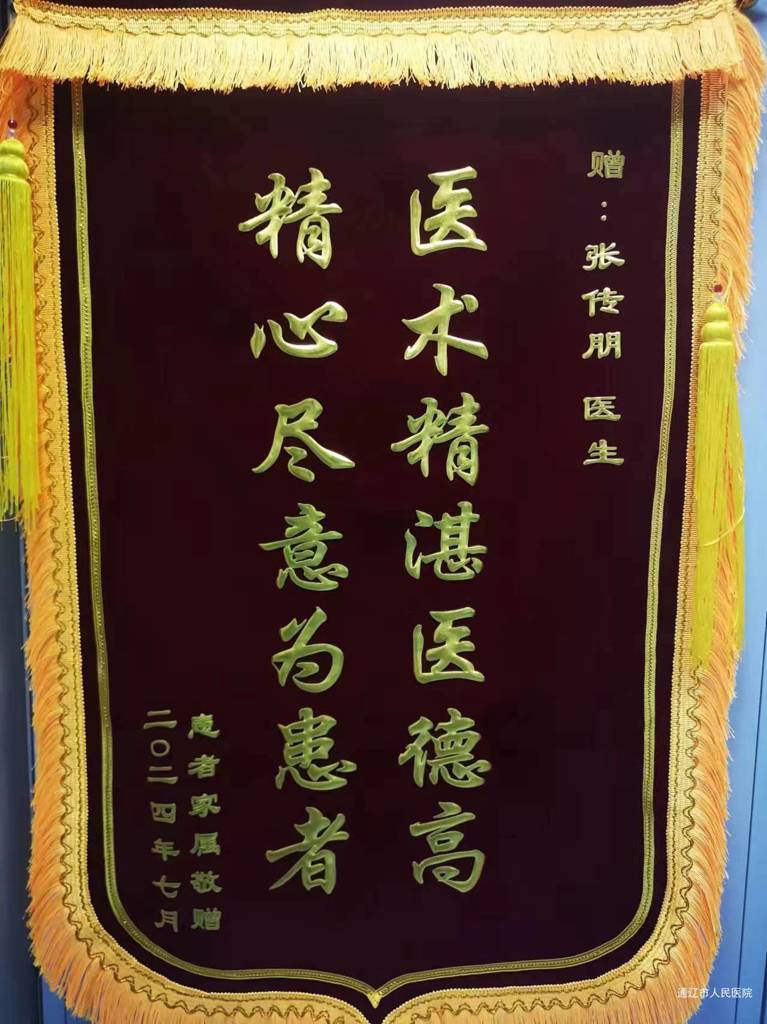 赠：张传朋 医生
医术精湛医德高
精心尽意为患者
患者家属敬赠
二〇二四年七月
通辽市人民医院